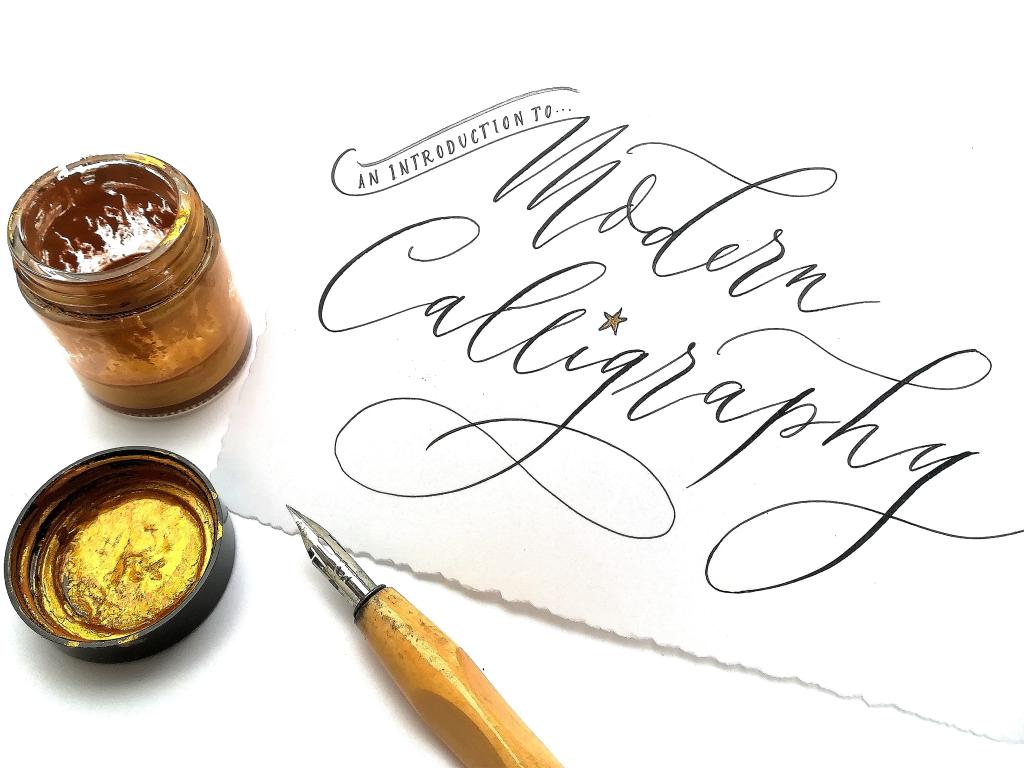 AN INTRODUCTION TO...
Modern
Calligraphy